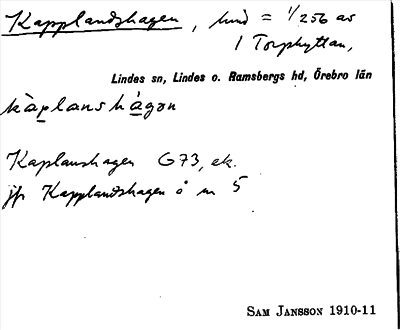 Kapplandshagen, hmd = 1/256 av
1 Torphyttan,
Lindes sn, Lindes o. Ramsbergs hd, Örebro län
kàplanshàgon
Kaplanshagen G73, ek.
jfr Kapplandshagen å nr 5
SAM JANSSON 1910-11